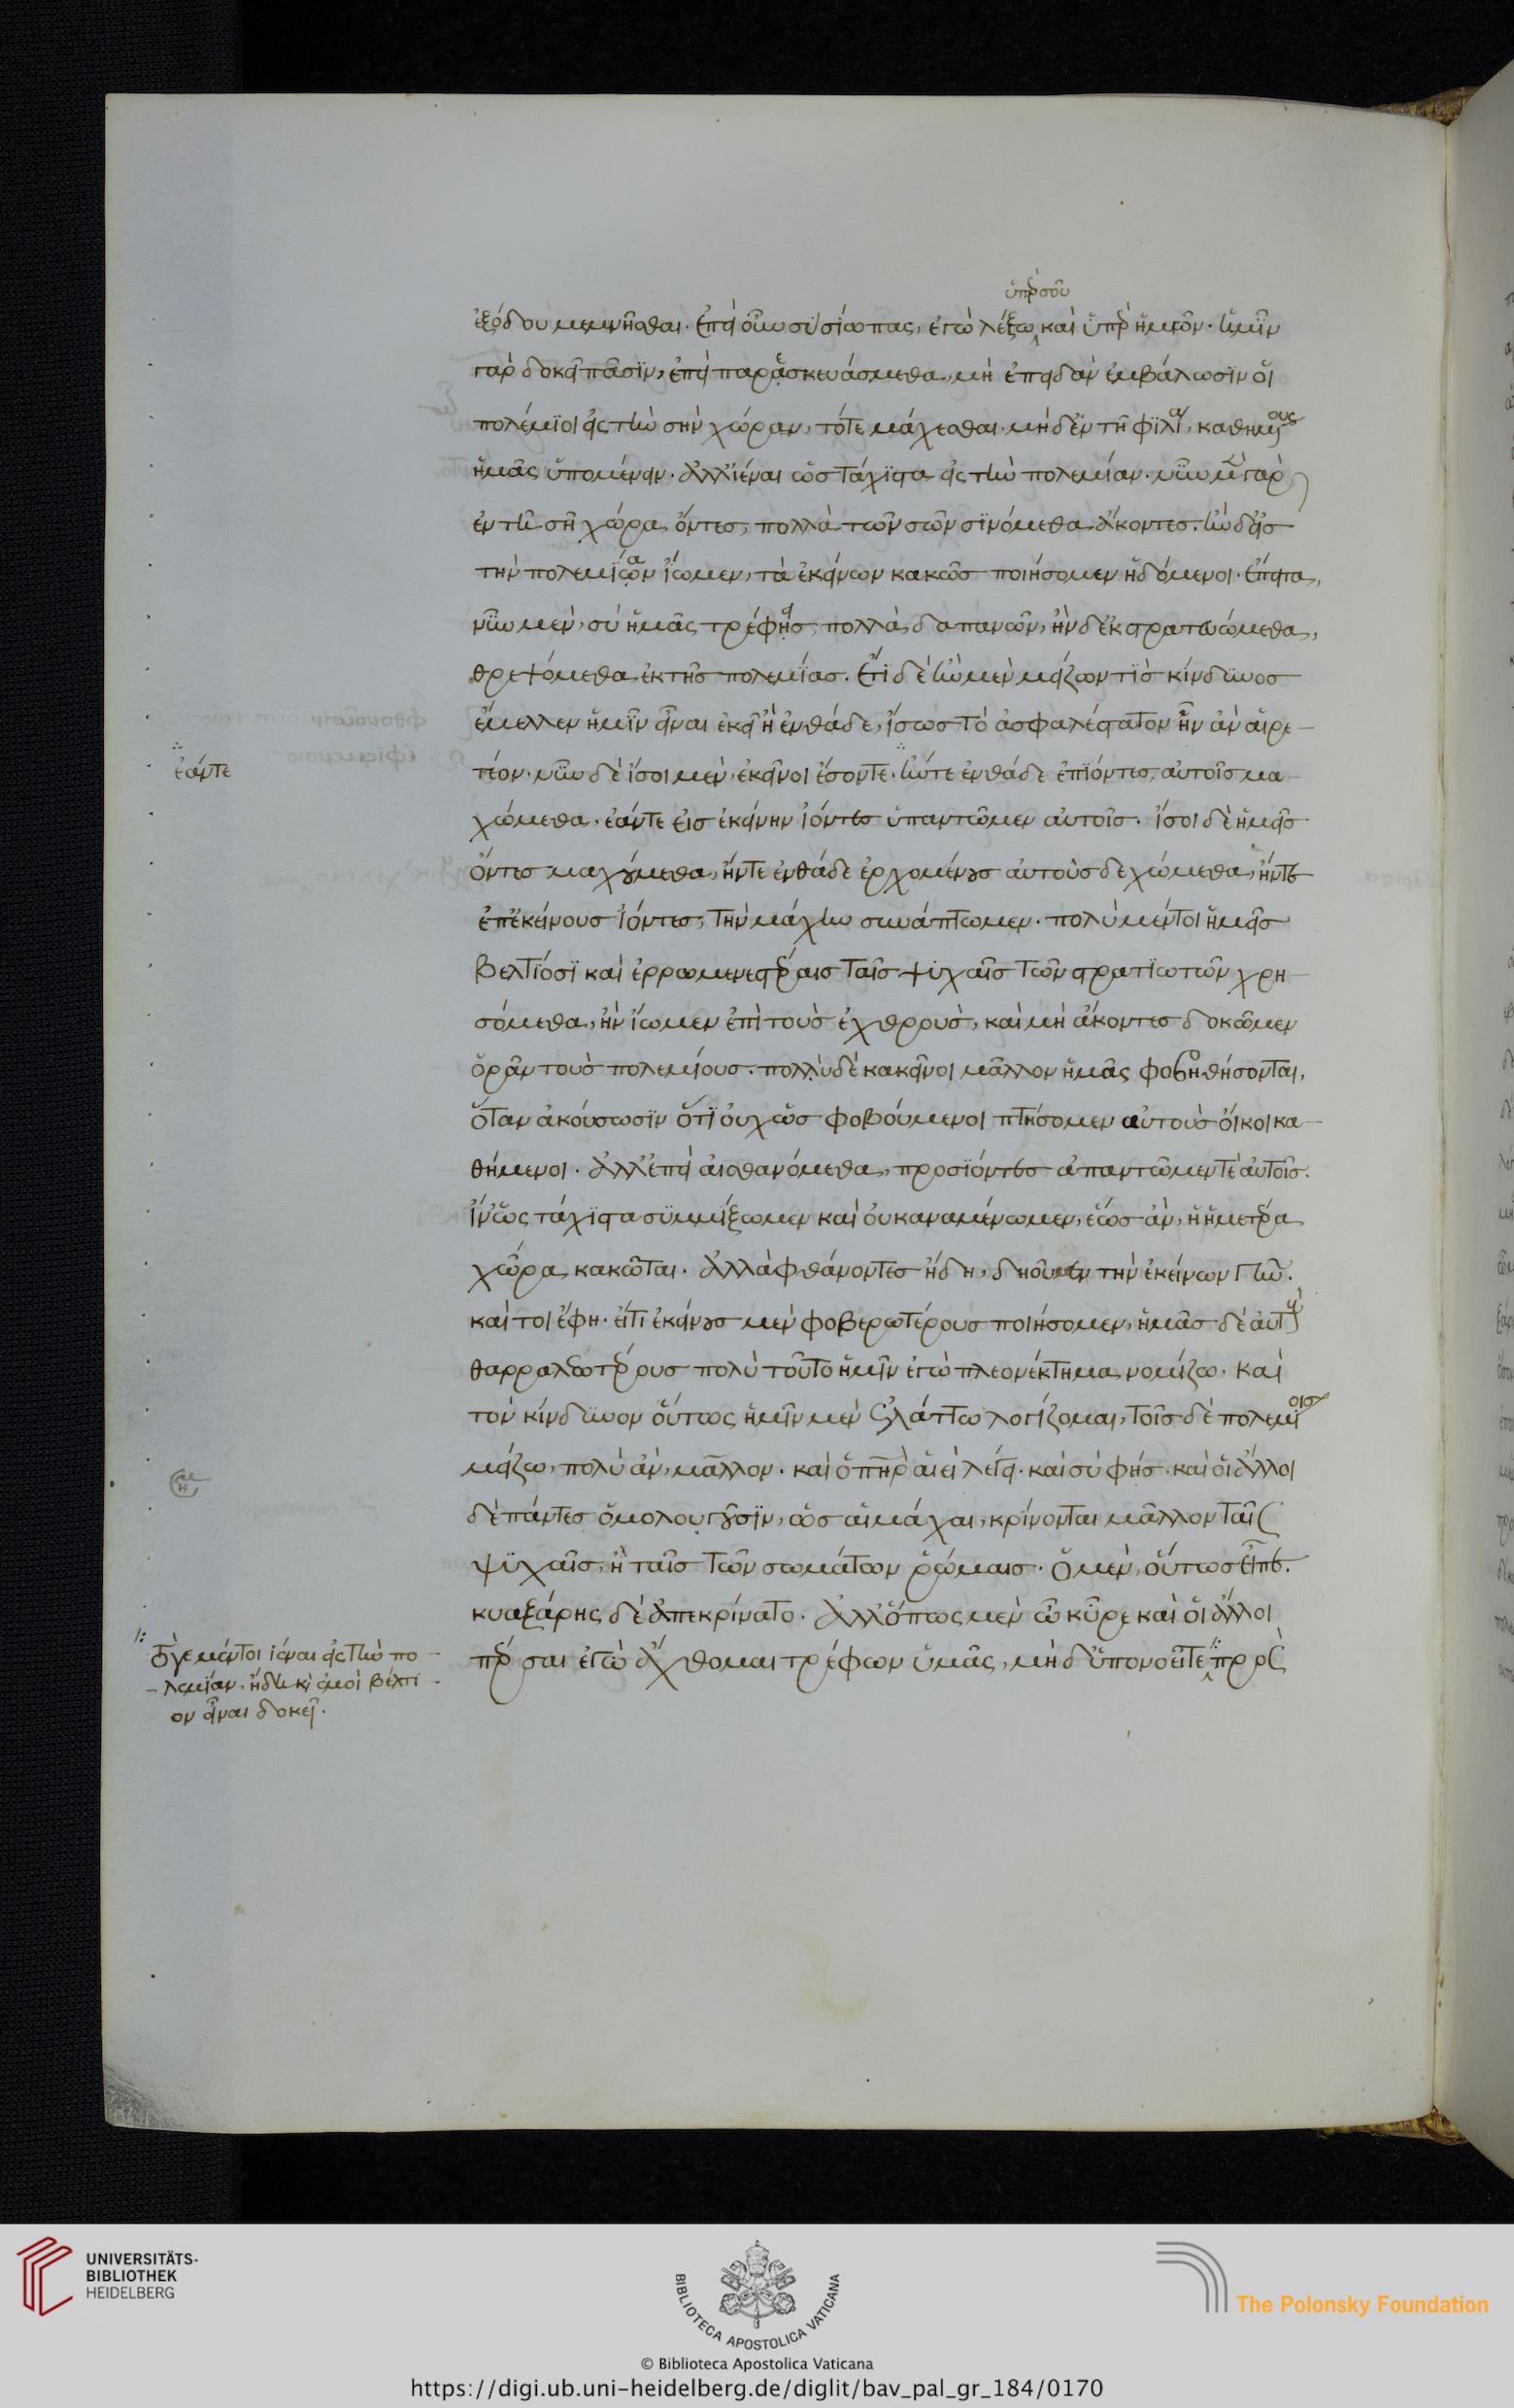 ὑπὲρ σοῦ
ἐξόδου μεμνῆσθαι. ἐπεὶ οὖν σὺ σιωπᾶς, ἐγὼ λέξω καὶ ὑπὲρ ἡμῶν. ἡμῖν
γὰρ δοκεῖ πᾶσιν, ἐπεὶ παρασκευάσμεθα, μὴ ἐπειδὰν ἐμβάλωσιν οἱ
πολέμιοι εἰς τὴν σὴν χώραν, τότε μάχεσθαι. μὴδ' ἐν τῆ φιλία, καθημένους
ἡμᾶς ὑπομένειν. ἀλλ' ἰέναι ὡς τάχιστα εἰς τὴν πολεμίαν. νῦν μὲν γὰρ
ἐν τῆ σῆ χώρα ὄντες, πολλὰ τῶν σῶν σινόμεθα ἄκοντες. ἢν δ' εἰς
τὴν πολεμίαν ἴωμεν, τὰ ἐκείνων κακῶς ποιήσομεν ἡδόμενοι. ἔπειτα,
νῦν μὲν, σὺ ἡμᾶς τρέφεις πολλὰ δαπανῶν, ἢν δ' ἐκστρατευώμεθα,
θρεψόμεθα ἐκ τῆς πολεμίας. ἔτι δὲ ἢν μὲν μείζων τὶς κίνδυνος
ἔμελλεν ἡμῖν εἶναι ἐκεῖ ἢ ἐνθάδε, ἴσως τὸ ἀσφαλέστατον ἦν ἂν αἱρε-
τέον. νῦν δὲ ἴσοι μὲν, ἐκεῖνοι ἔσονται. ἤντε ἐνθάδε ἐπιόντες αὐτοῖς μα-
χώμεθα. ἐάντε εἰς ἐκείνην ἰόντες ὑπαντῶμεν αὐτοῖς. ἴσοι δὲ ἡμεῖς
ὄντες μαχούμεθα, ἤντε ἐνθάδε ἐρχομένους αὐτοὺς δεχώμεθα, ἤντε
ἐπ' ἐκείνους ἰόντες, τὴν μάχην συνάπτωμεν. πολὺ μέντοι ἡμεῖς
βελτίοσι καὶ ἐρρωμενεστέραις ταῖς ψυχαῖς τῶν στρατιωτῶν χρη-
σόμεθα, ἢν ἴωμεν ἐπὶ τοὺς ἐχθροὺς, καὶ μὴ ἄκοντες δοκῶμεν
ὁρᾶν τοὺς πολεμίους. πολὺ δὲ κακεῖνοι μᾶλλον ἡμᾶς φοβηθήσονται,
ὅταν ἀκούσωσιν ὅτι οὐχ ὡς φοβούμενοι πτήσομεν αὐτοὺς οἴκοι κα-
θήμενοι. ἀλλ' ἐπεὶ αἰσθανόμεθα, προσιόντες ἀπαντῶμεν τὲ αὐτοῖς.
ἵν' ὡς τάχιστα συμμίξωμεν καὶ οὐκ αναμένωμεν, ἕως ἂν, ἡ ἡμετέρα
χώρα κακῶται. ἀλλὰ φθάνοντες ἤδη, δηοῦμεν τὴν ἐκείνων γῆν.
καὶ τοι ἔφη. εἴ τι ἐκείνους μὲν φοβερωτέρους ποιήσομεν, ἡμᾶς δὲ αὐτοὺς
θαρραλεωτέρους πολὺ τοῦτο ἡμῖν ἐγὼ πλεονέκτημα νομίζω. καὶ
τὸν κίνδυνον οὕτως ἡμῖν μὲν ἐλάττω λογίζομαι, τοῖς δὲ πολεμίοις
μείζω, πολὺ ἂν, μᾶλλον. καὶ ὁ πατὴρ αἰεὶ λέγει. καὶ σὺ φής. καὶ οἱ ἄλλοι
δὲ πάντες ὁμολουγοῦσιν, ὡς αἱ μάχαι, κρίνονται μᾶλλον ταῖς
ψυχαῖς, ἢ ταῖς τῶν σωμάτων ῥώμαις. ὁ μὲν, οὕτως εἶπε.
κυαξάρης δὲ ἀπεκρίνατο. ἀλλ' ὅπως μὲν ὦ κῦρε καὶ οἱ ἄλλοι
πέρσαι ἐγὼ ἄχθομαι τρέφων ὑμᾶς, μὴδ' ὑπονοεῖτε πρὸς
ἐάντε
τόγε μέντοι ἰέναι εἰς τὴν πο-
-λεμίαν, ἤδη κὶ ἐμοὶ βέλτι-
ον εἶναι δοκεῖ.
UNIVERSITÄTS-
BIBLIOTHEK
HEIDELBERG
BIBLIOTECA APOSTOLICA VATICANA
The Polonsky Foundation
© Biblioteca Apostolica Vaticana
https://digi.ub.uni-heidelberg.de/diglit/bav_pal_gr_184/0170